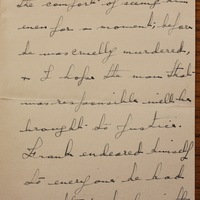 the comfort of seeing him
even for a moment, before
he was cruelly murdered,
& I hope the man that
was responsible will be
brought to Justice.
Frank endeared himself
to every one he had